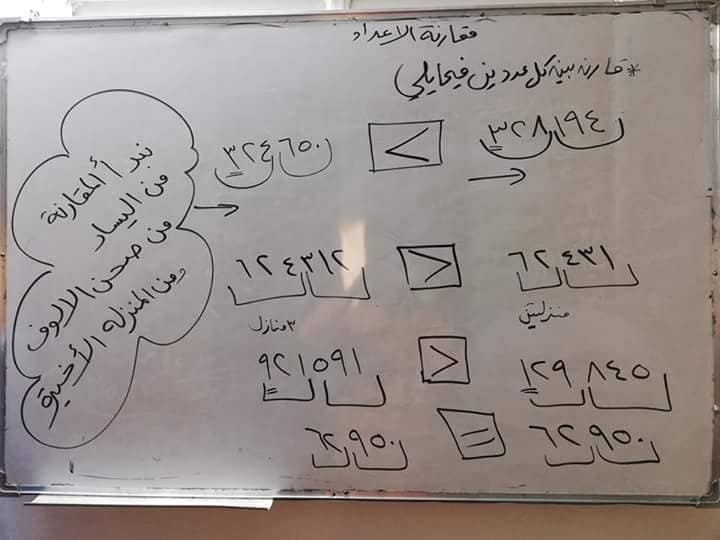 مقارنة الاعداد
* قارن بين كل عددين فيما يلي
٣٢٨١٩٤ > ٣٢٤٦٥٠
٦٢٤٣١ < ٦٢٤٣١٢
منزلتين ٣ منازل
١٢٩٨٤٥ < ٩٢١٥٩١
٦٢٩٥٠ = ٦٢٩٥٠
نبدأ المقارنة
من اليسار
من صحن الالوف
ومن المنزله الأخيرة